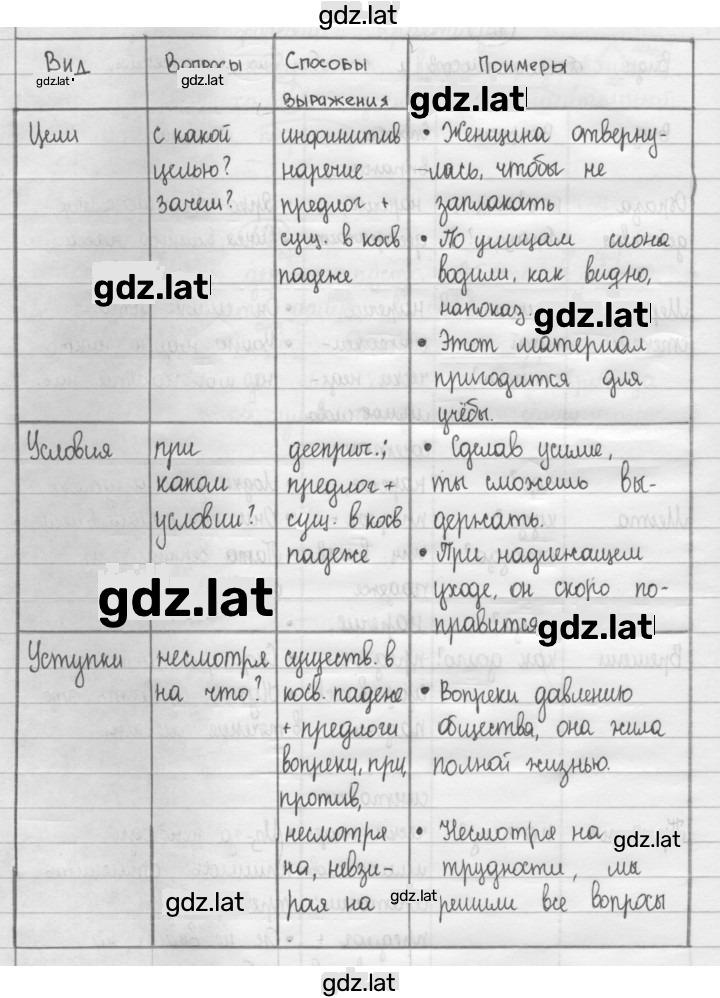 gdz.lat
Вид Вопросы Способы выражения Примеры
gdz.lat gdz.lat gdz.lat
Цели с какой инфинитив • Женщина отверну-
целью? наречие лась, чтобы не
зачем? предлог + заплакать
сущ. в косв • По улицам слона
падеже водили, как видно,
gdz.lat
напоказ.
gdz.lat
• Этот материал
пригодится для
учёбы.
Условия при дееприч.; • Сделав усилие,
каком предлог + ты сможешь вы-
условии? сущ. в косв держать.
падеже • При надлежащем
gdz.lat
уходе, он скоро по-
правится
gdz.lat
Уступки несмотря существ. в
на что? косв. падеже • Вопреки давлению
+ предлоги общества, она жила
вопреки, при, полной жизнью.
против,
несмотря • Несмотря на
gdz.lat
на, невзи- трудности, мы
gdz.lat gdz.lat
рая на решили все вопросы
gdz.lat